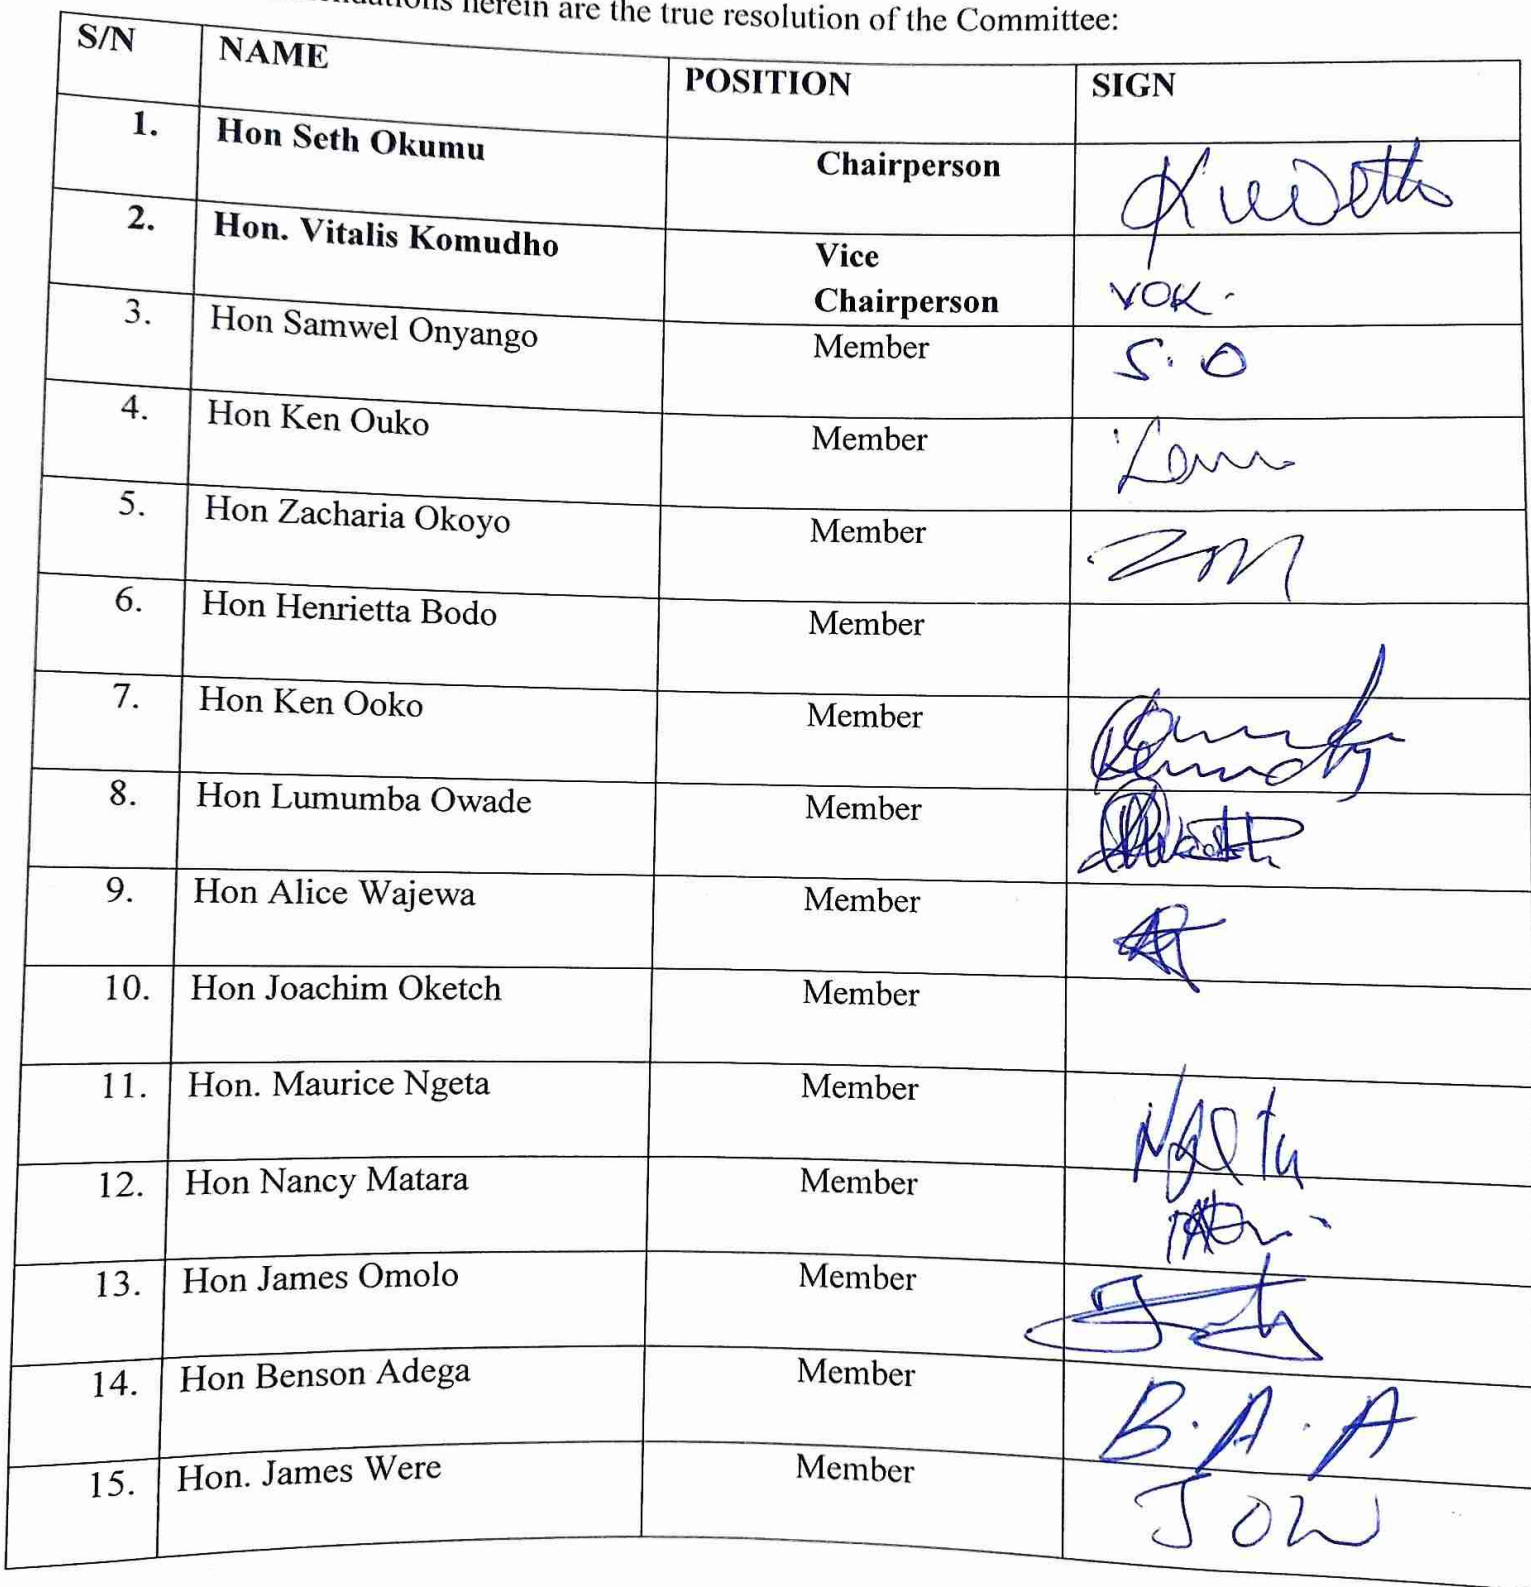 herein are the true resolution of the Committee:
S/N NAME POSITION SIGN
1. Hon Seth Okumu Chairperson
2. Hon. Vitalis Komudho Vice
Chairperson VOK.
3. Hon Samwel Onyango Member S. O
4. Hon Ken Ouko Member
5. Hon Zacharia Okoyo Member
6. Hon Henrietta Bodo Member
7. Hon Ken Ooko Member
8. Hon Lumumba Owade Member
9. Hon Alice Wajewa Member
10. Hon Joachim Oketch Member
11. Hon. Maurice Ngeta Member
12. Hon Nancy Matara Member
13. Hon James Omolo Member
14. Hon Benson Adega Member B. A. A
15. Hon. James Were Member JOW